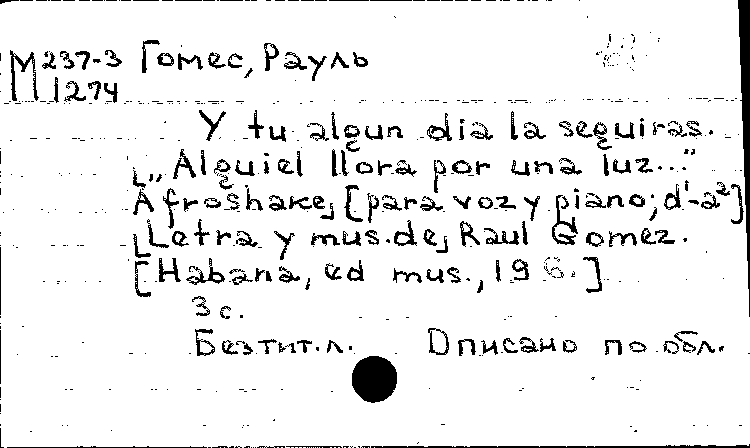 М 237-3 Гомес, Рауль
1274
Y tu algun dia la seguiras.
[„Alguiel llora por una luz...”
Afroshake] [para voz y piano; d¹-a²]
[Letra y mus. de] Raul Gomez.
[Habana, ed mus., 196.]
3 с.
Без тит. л. Описано по обл.